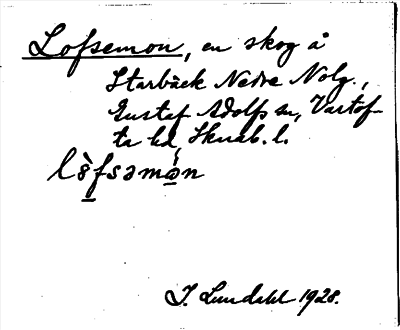 Lofsemon, en skog å
Starbäck Nedre Nolg.,
Gustaf Adolfs sn, Vartof-
ta hd, Skarab. l.
lò̱fsəmo̱n
J. Lundahl 1928.